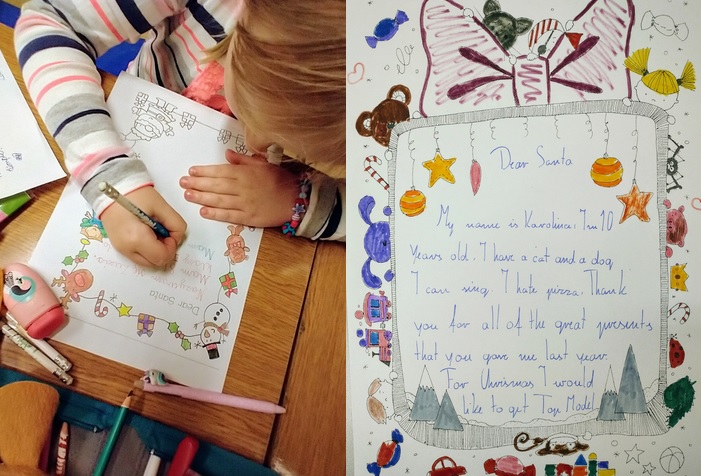 Dear Santa
Dear Santa
My name is Karolina. I'm 10
years old. I have a cat and a dog
I can sing. I hate pizza. Thank
you for all of the great presents
that you gave me last year.
For I would
like to get Top Model